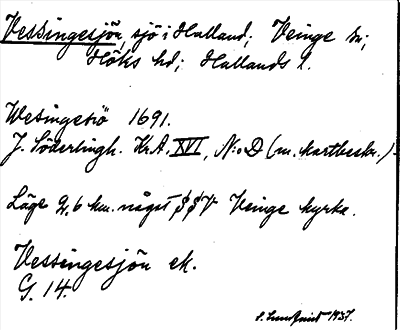 Vessingesjön, sjö i Halland; Veinge sn;
Höks hd; Hallands l.
Wesingesiö 1691.
J. Söderlingh. Kr.A. XVI, N:o D (m. kartbeskr.).
Läge 2,6 km. något SSV Veinge kyrka.
Vessingesjön ek.
G. 14.
1937.